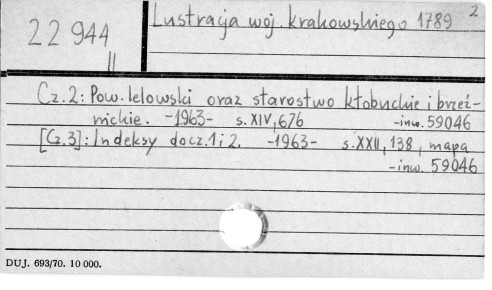 2
Lustracja woj. krakowskiego 1789
22 944
II
Cz.2: Pow. lelowski oraz starostwo kłobuckie i brzeź-
nickie. -1963- s. XIV, 676 -inw. 59046
[Cz.3]: Indeksy do cz. 1 i 2. -1963- s. XXII, 138, mapa
-inw. 59046
DUJ. 693/70. 10 000.